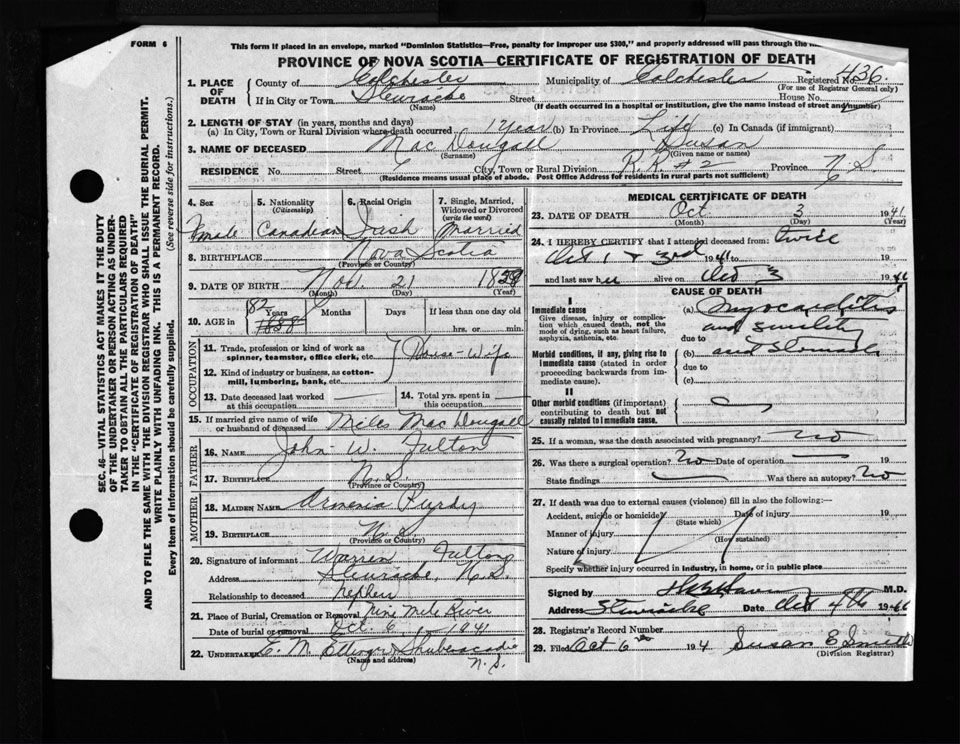 FORM 6
This form if placed in an envelope, marked "Dominion Statistics—Free, penalty for improper use $300," and properly addressed will pass through the
PROVINCE OF NOVA SCOTIA—CERTIFICATE OF REGISTRATION OF DEATH
SEC. 46—VITAL STATISTICS ACT MAKES IT THE DUTY
OF THE UNDERTAKER OR PERSON ACTING AS UNDER-
TAKER TO OBTAIN ALL THE PARTICULARS REQUIRED
IN THE "CERTIFICATE OF REGISTRATION OF DEATH"
AND TO FILE THE SAME WITH THE DIVISION REGISTRAR WHO SHALL ISSUE THE BURIAL PERMIT.
WRITE PLAINLY WITH UNFADING INK. THIS IS A PERMANENT RECORD.
Every item of information should be carefully supplied. (See reverse side for instructions.)
1. PLACE OF DEATH
County of Colchester Municipality of Colchester Registered No. 436
(For use of Registrar General only)
If in City or Town Stewiacke Street House No.
(Name) (If death occurred in a hospital or institution, give the name instead of street and number)
2. LENGTH OF STAY (in years, months and days)
(a) In City, Town or Rural Division where death occurred 1 Year (b) In Province Life (c) In Canada (if immigrant)
3. NAME OF DECEASED MacDougall Susan
(Surname) (Given name or names)
RESIDENCE No. Street City, Town or Rural Division R.R. # 2 Province N.S
(Residence means usual place of abode. Post Office Address for residents in rural parts not sufficient)
4. Sex 5. Nationality (Citizenship) 6. Racial Origin 7. Single, Married, Widowed or Divorced (write the word)
Female Canadian Irish Married
8. BIRTHPLACE Nova Scotia
(Province or Country)
9. DATE OF BIRTH Nov. 21 18
(Month) (Day) (Year)
10. AGE in 82 Years 1858 Months Days If less than one day
hrs. or min.
OCCUPATION
11. Trade, profession or kind of work as spinner, teamster, office clerk, etc. House-Wife
12. Kind of industry or business, as cotton-mill, lumbering, bank, etc.
13. Date deceased last worked at this occupation 14. Total yrs. spent in this occupation
15. If married give name of wife or husband of deceased Miles MacDougall
FATHER
16. NAME John W. Fulton
17. BIRTHPLACE N.S.
(Province or Country)
MOTHER
18. MAIDEN NAME Armenia Purdy
19. BIRTHPLACE N.S.
(Province or Country)
20. Signature of informant Warren Fulton
Address Stewiacke, N.S.
Relationship to deceased Nephew
21. Place of Burial, Cremation or Removal Nine Mile River
Date of burial or removal Oct. 6, 1941
22. UNDERTAKER E. M. Shubenacadie
(Name and address) N.S.
MEDICAL CERTIFICATE OF DEATH
23. DATE OF DEATH Oct. 3 1941
(Month) (Day) (Year)
24. I HEREBY CERTIFY that I attended deceased from: twice
Oct 1 & 3rd 1941 to 19
and last saw her alive on Oct 3 19
CAUSE OF DEATH
I
Immediate cause
Give disease, injury or complication which caused death, not the mode of dying, such as heart failure, asphyxia, asthenia, etc.
(a) Myocarditis
and senility
due to
Morbid conditions, if any, giving rise to immediate cause (stated in order proceeding backwards from immediate cause).
(b) and
due to
(c)
II
Other morbid conditions (if important) contributing to death but not causally related to immediate cause.
25. If a woman, was the death associated with pregnancy? No
26. Was there a surgical operation? No Date of operation 19
State findings Was there an autopsy? No
27. If death was due to external causes (violence) fill in also the following:—
Accident, suicide or homicide? Date of injury 19
(State which)
Manner of injury
(How sustained)
Nature of injury
Specify whether injury occurred in industry, in home, or in public place
Signed by M.D.
Address Stewiacke Date Oct 4th 19
28. Registrar's Record Number
29. Filed Oct 6 194 Susan E Smith
(Division Registrar)